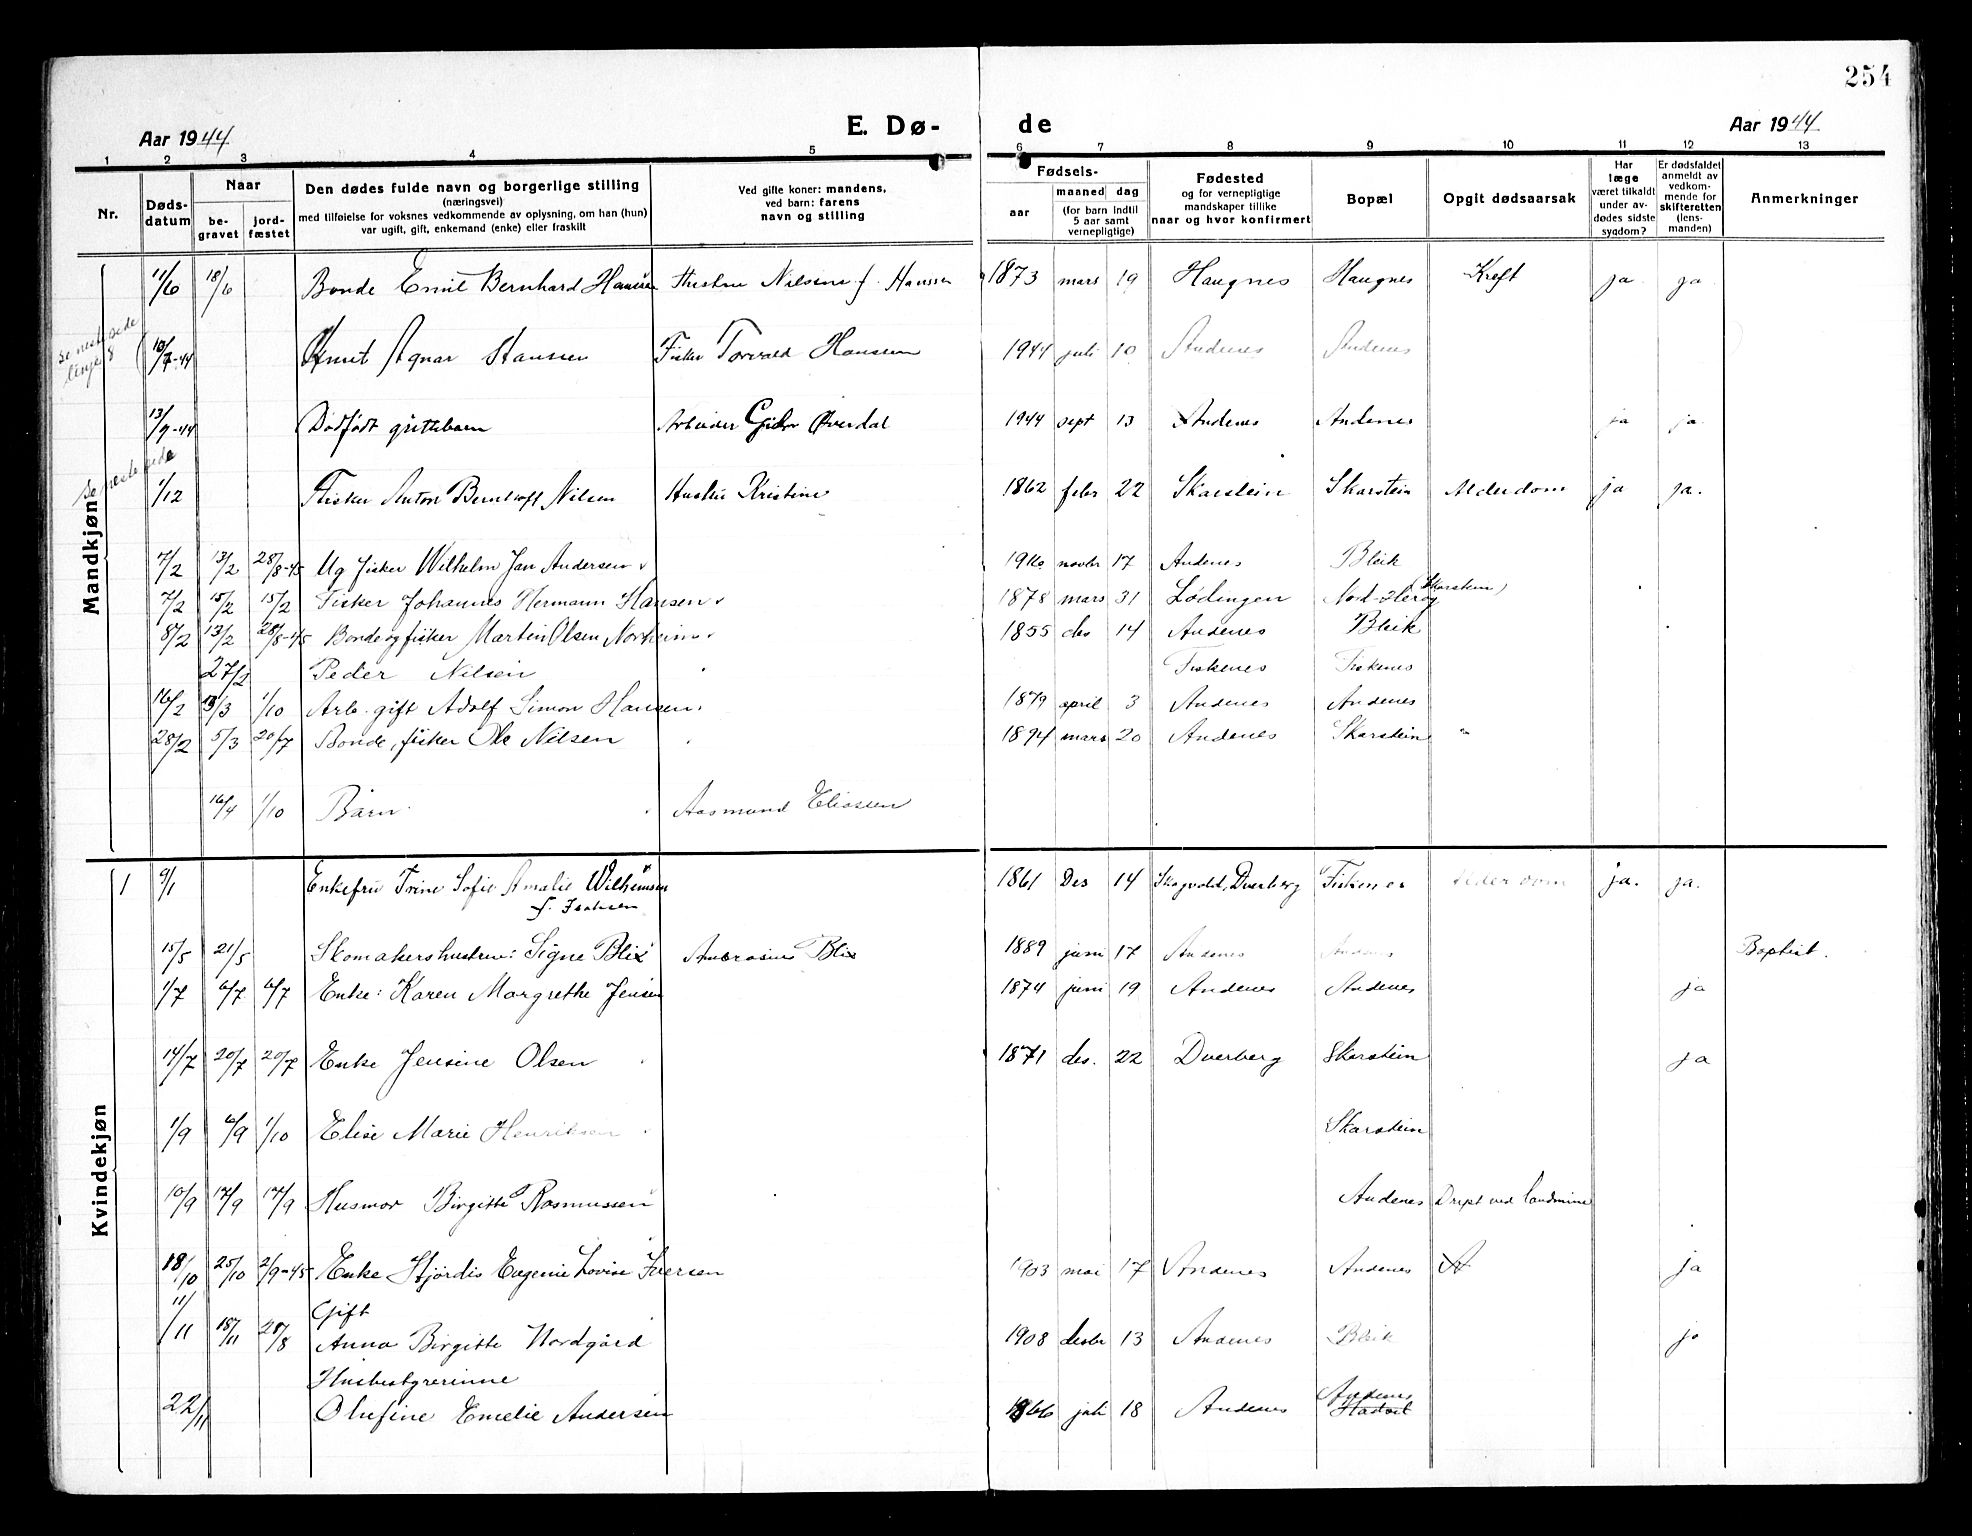 254
Aar 1944 E. Dø- de Aar 1944
1 2 3 4 5 6 7 8 9 10 11 12 13
Nr. Døds-datum Naar be-gravet jord-fæstet Den dødes fulde navn og borgerlige stilling (næringsvei) med tilføielse for voksnes vedkommende av oplysning, om han (hun) var ugift, gift, enkemand (enke) eller fraskilt Ved gifte koner: mandens, ved barn: farens navn og stilling Fødsels- aar maaned dag (for barn indtil 5 aar samt vernepligtige) Fødested og for vernepligtige mandskaper tillike naar og hvor konfirmert Bopæl Opgit dødsaarsak Har læge været tilkaldt under av-dødes sidste sygdom? Er dødsfaldet anmeldt av vedkom-mende for skifteretten (lens-manden) Anmerkninger
Mandkjøn
11/6 18/6 Bonde Emil Bernhard Hansen Nilsine f. Hanssen 1873 mars 19 Haugnes Haugnes Kreft ja ja
se neste side linje 8
10/7-44 Knut Agnar Hanssen Fisker Torvald Hanssen 1944 juli 10 Andenes Andenes
13/9-44 Dødfødt guttebarn Arbeider Øverdal 1944 sept 13 Andenes Andenes ja ja
se neste side
1/12 Fisker Anton Berntsoft Nilsen Hustru Kristine 1862 febr 22 Skarstein Skarstein Alderdom ja ja.
7/2 13/2 28/8-45 Ug fisker Wilhelm Jan Andersen novbr 17 Andenes Bleik
7/2 15/2 15/2 Fisker Johannes Hermann Hansen 1878 mars 31 Lødingen (Skarstein)
8/2 13/2 28/8-45 Bonde og fisker Martin Olsen Norheim 1855 des 14 Andenes Bleik
27/2 Peder Nilsen Fiskenes Fiskenes
16/2 13/3 1/10 Arb. gift Adolf Simon Hansen 1879 april 3 Andenes Andenes
28/2 5/3 20/7 Bonde, fisker Ole Nilsen 1894 mars 20 Andenes Skarstein "
16/4 1/10 Barn Aasmund Eliassen
Kvindekjøn
1 9/1 Enkefru Trine Sofie Amalie Wilhelmsen 1861 Des 14 Skogvold, Dverberg Fiskenes Alderdom ja. ja.
f. Isaksen
15/5 21/5 Skomakershustru: Signe Blix Ambrosius Blix 1889 juni 17 Andenes Andenes Baptist.
1/7 6/7 6/7 Enke: Karen Margrethe Jensen 1874 juni 19 Andenes Andenes ja
14/7 20/7 20/7 Enke Jensine Olsen 1871 des. 22 Dverberg Skarstein ja
1/9 6/9 1/10 Elise Marie Henriksen Skarstein
10/9 17/9 17/9 Husmor Birgitte Rasmussen Andenes Drept ved landmine
18/10 25/10 2/9-45 Enke Hjørdis Eugenie Lovise Iversen 1903 mai 17 Andenes Andenes A ja
Gift
11/11 18/11 28/8 Anna Birgitte Nordgård 1908 desbr 13 Andenes Bleik ja
Husbestyrerinne
22/11 Olufine Emelie Andersen 1866 juli 18 Andenes Andenes